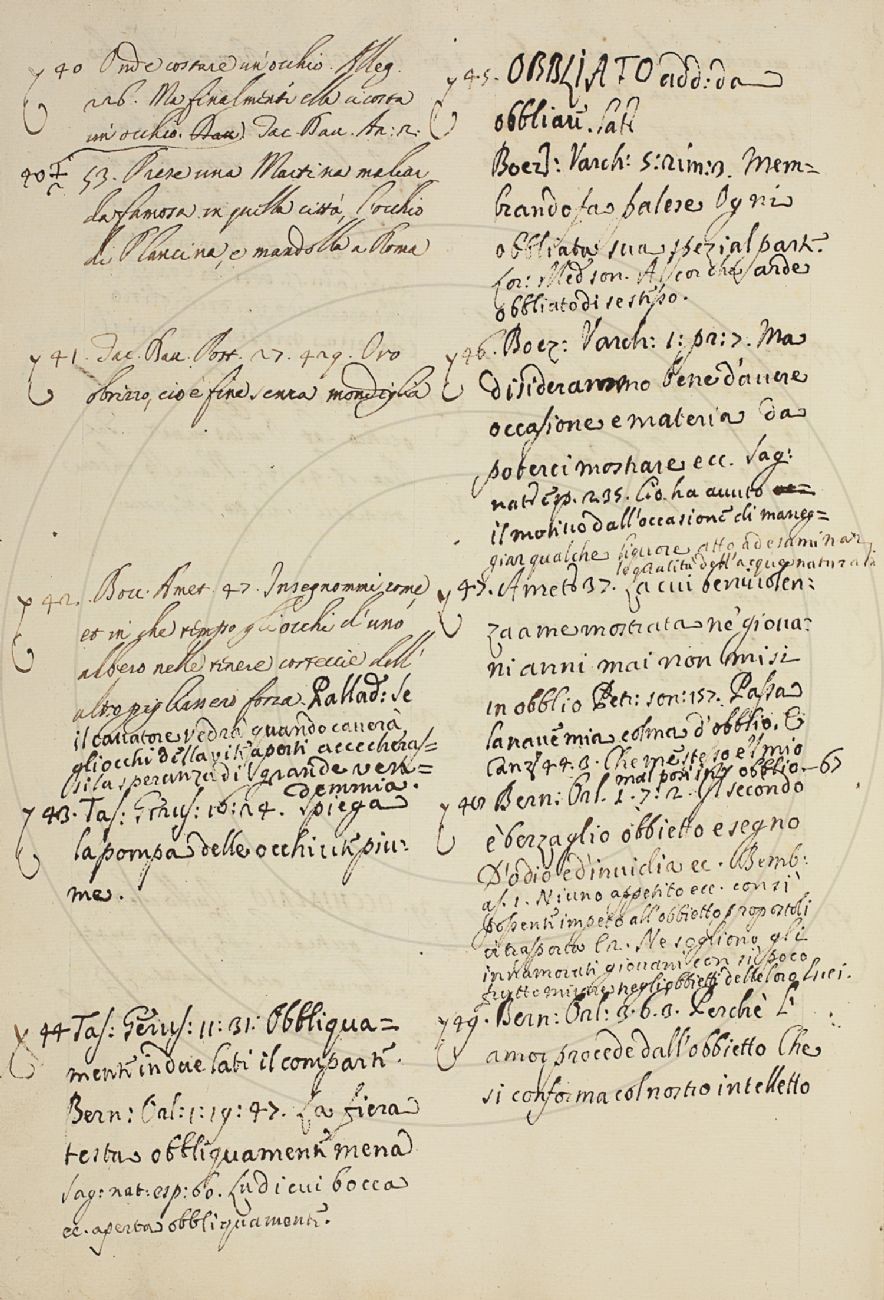 40 Onde costare un'occhio. Alleg.
226. Ma finalmente ella ci costa
un'occhio. Dav. Tac. Dav. An: 2:
40 53. Prese una Martina maliar
da famosa in quella città, l'occhio
di Plancina, e mandolla a Roma
41. Tac. Dav. Post. 27. 429. Oro
obrizzo, cioè fine senza mondiglia
42. Bocc. Amet. 47. Insegnommi come,
et in che tempo gli occhi d'uno
albero nelle tenere corteccie dell'
altro pigliasser forza. Pallad: Se
il cavatore vedrà quando caverà
gli occhi della vite aperti accecheras=
si la speranza di grande ven=
demmia.
43. Tas: Gerus: 16: 24. Spiega
la pompa delle occhiute piu:
me.
44 Tas: Gerus: 11: 31: Obbliqua=
mente in due lati il comparte.
Bern: Orl: 1: 19: 47. La fiera
testa obbliquamente mena
Sag: nat: esp: 60. La di cui bocca
ec. aperta obbliquamente.
45. OBBLIATO add: da
obbliare. Lat
Boez: Varch: 5: rim: 3. Mem=
brando fa palese Ogni
obbliata sua spezial parte.
Lor: Med son. Ancor che arde
obbliato di se stesso.
46. Boez: Varch: 1: pr: 7. Ma
disiderammo bene d'avere
occasione e materia da
poterci mostrare ecc. Sag:
nat: esp. 235. Cio ha avuto
il motivo dall'occasione di maneg=
giar qualche liquore atto ad esaminar
le qualità dell'acque naturali
47. Ameto 37. La cui benivolen:
za a me mostrata ne' giova:
ni anni mai non misi
in obblio Petr: son: 157. Passa
la nave mia colma d'obblio. E
Canz: 44. 3. Che me stesso e'l mio
mal posi in obblio — 67
48 Bern: Orl. 1. 7: 2. Il secondo
è berzaglio obbietto e segno
D'odio ed'invidia ec. Bemb:
as: 1. Niuno appetito ecc. con sì
possente impeto all'obbietto propostoli
ci trasporta E 2. Ne sogliono gli
innamorati giovani con sì poco
frutto mirare negli obbietti delle loro luci.
49. Bern: Orl: 3. 6. 3. Perchè l'
amor procede dall'obbietto Che
si conforma col nostro intelletto